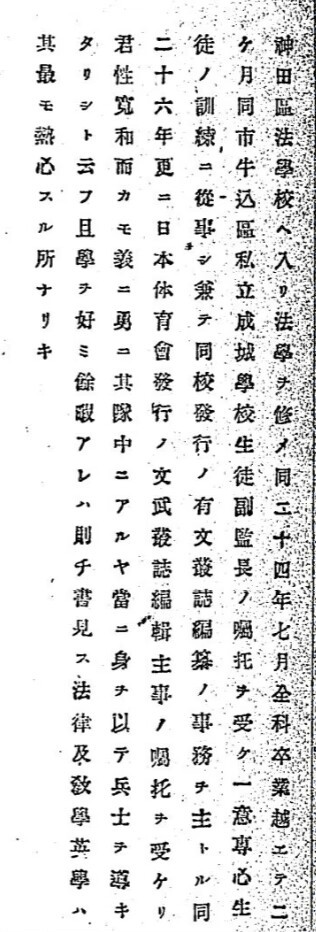 神田區法學校ヘ入リ法學ヲ修メ同二十四年七月全科卒業越エテ二
ケ月同市牛込區私立成城學校生徒副監長ノ囑托ヲ受ケ一意專心生
徒ノ訓練ニ從事シ兼テ同校發行ノ有文叢誌編纂ノ事務ヲ主トル同
二十六年更ニ日本体育會發行ノ文武叢誌編輯主事ノ囑托ヲ受ケリ
君性寬和而カモ義ニ勇ニ其隊中ニアルヤ當ニ身ヲ以テ兵士ヲ導キ
タリシト云フ且學ヲ好ミ餘暇アレハ則チ書見ス法律及数學英學ハ
其最モ熱心スル所ナリキ